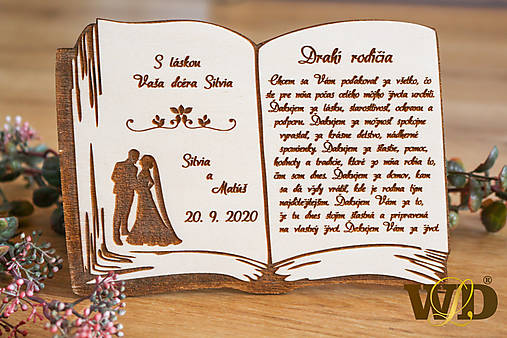 S láskou
Vaša dcéra Silvia
Silvia
a
Matúš
20. 9. 2020
Drahí rodičia
Chcem sa Vám poďakovať za všetko, čo
ste pre mňa počas celého môjho života urobili.
Ďakujem za lásku, starostlivosť, ochranu a
podporu. Ďakujem za možnosť spokojne
vyrastať, za krásne detstvo, nádherné
spomienky. Ďakujem za šťastie, pomoc,
hodnoty a tradície, ktoré zo mňa robia to,
čím som dnes. Ďakujem za domov, kam
sa dá vždy vrátiť, kde je rodina tým
najdôležitejším. Ďakujem Vám za to,
že tu dnes stojím šťastná a pripravená
na vlastný život. Ďakujem Vám za život.
WLD®